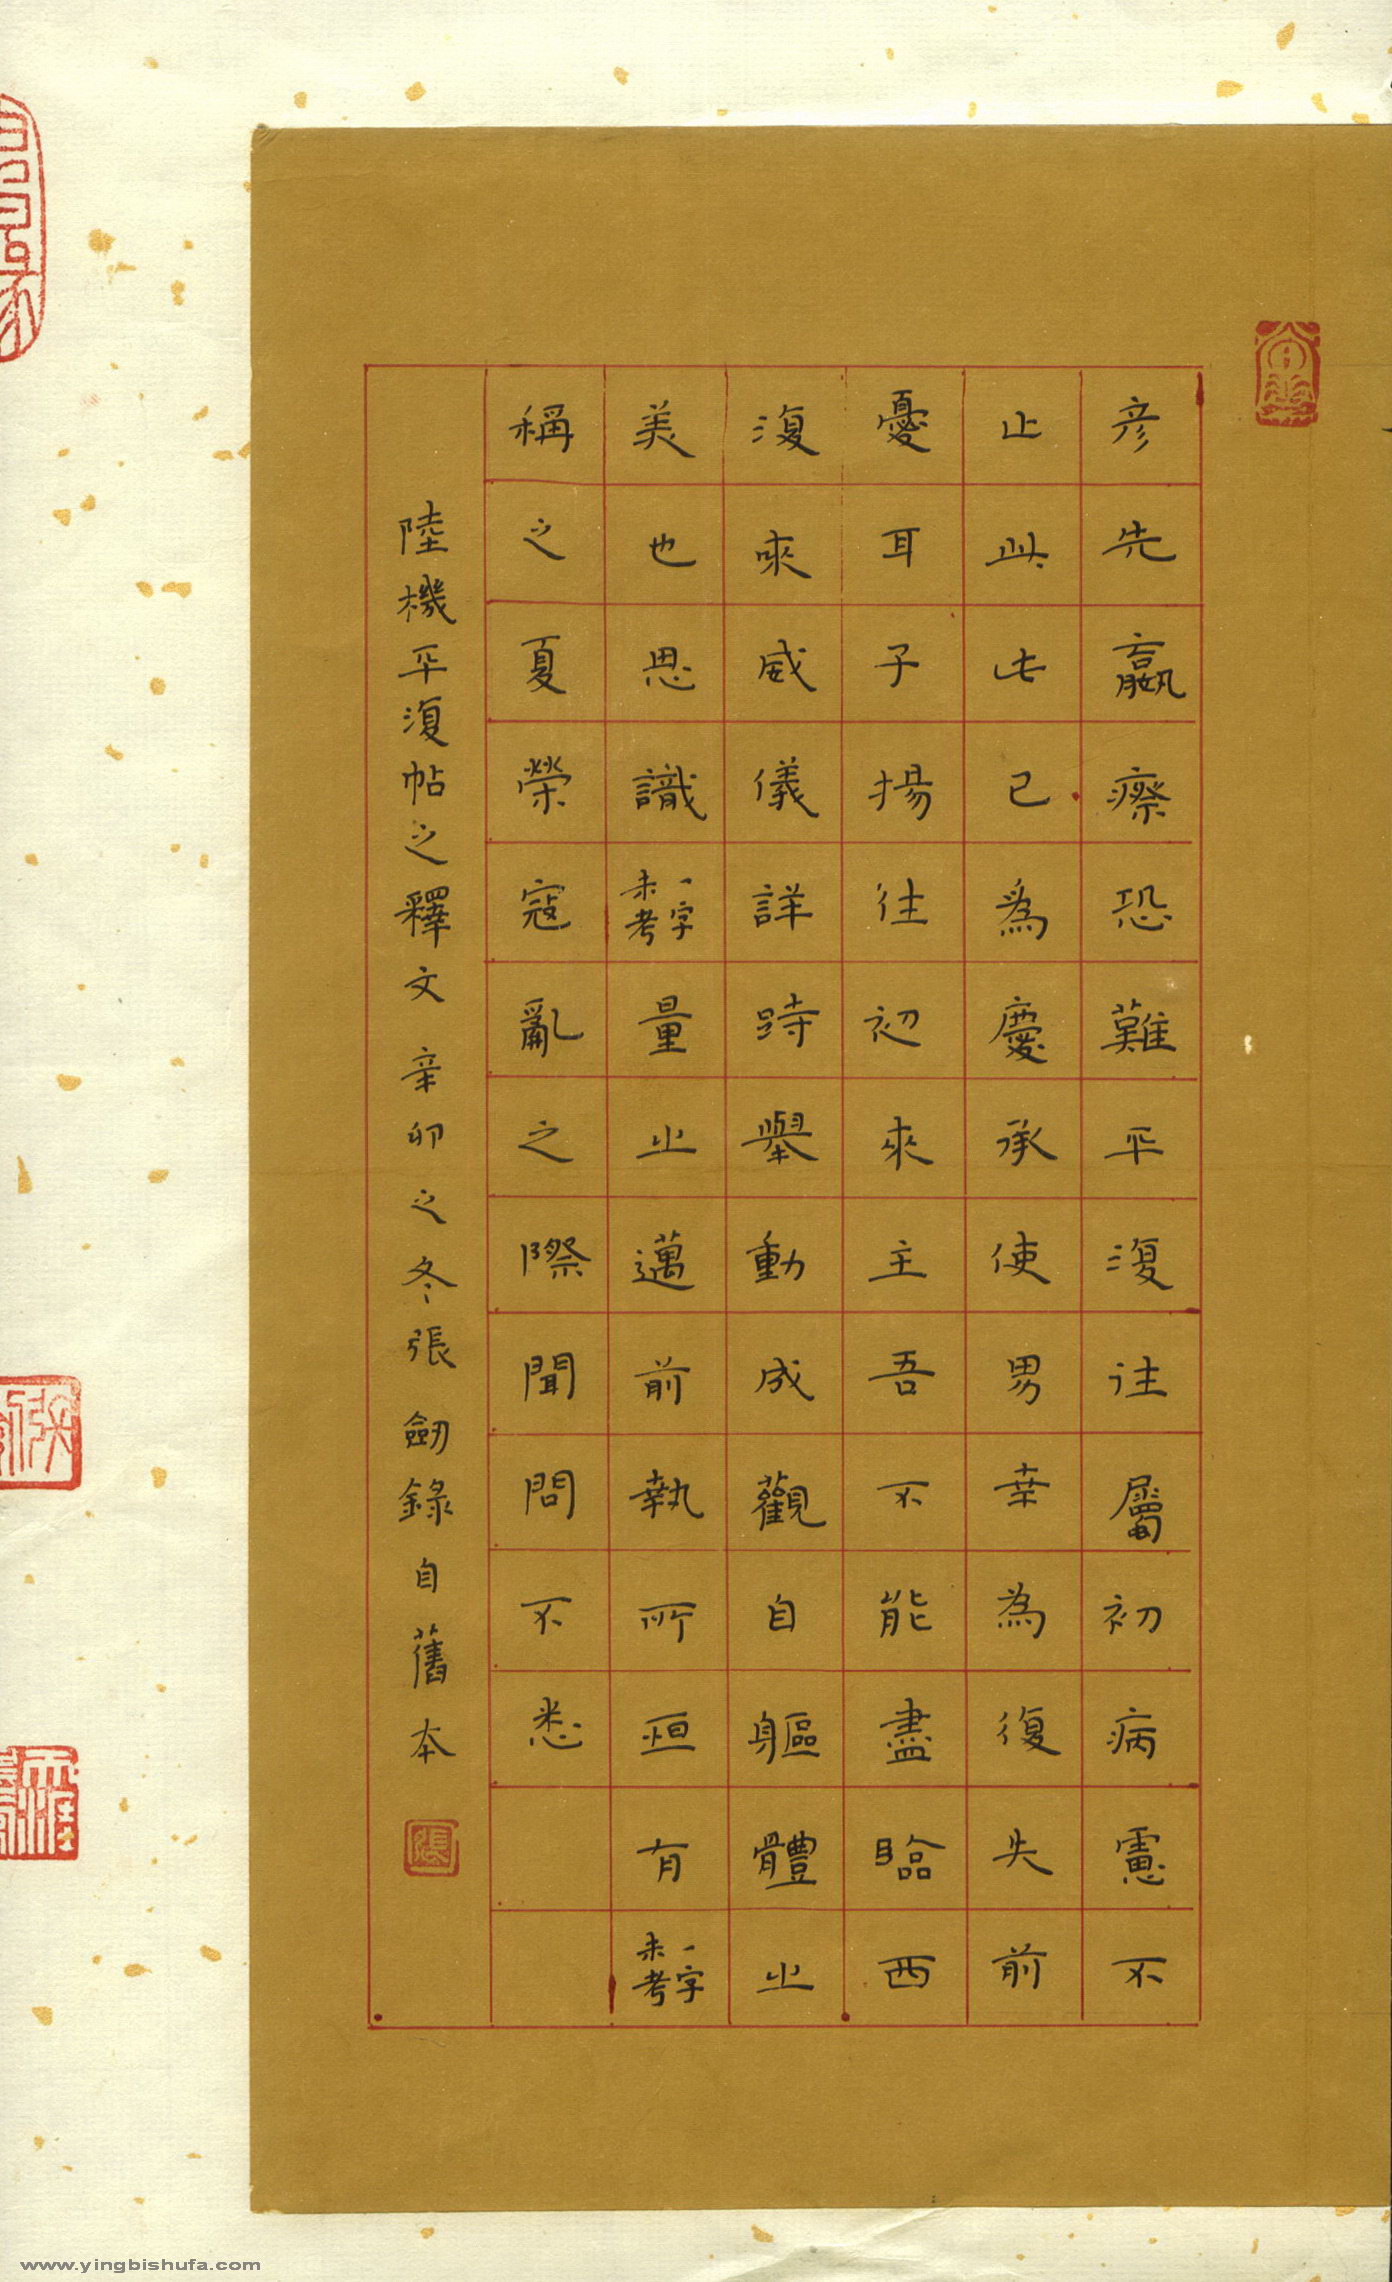 彥先羸瘵恐難平復往屬初病慮不
止此此已為慶承使男幸為復失前
憂耳子揚往初來主吾不能盡臨西
復來威儀詳跱舉動成觀自軀體之
美也思識一字未考量之邁前執所恒有一字未考
稱之夏榮寇亂之際聞問不悉
陸機平復帖之釋文 辛卯之冬張劒錄自舊本
張
www.yingbishufa.com